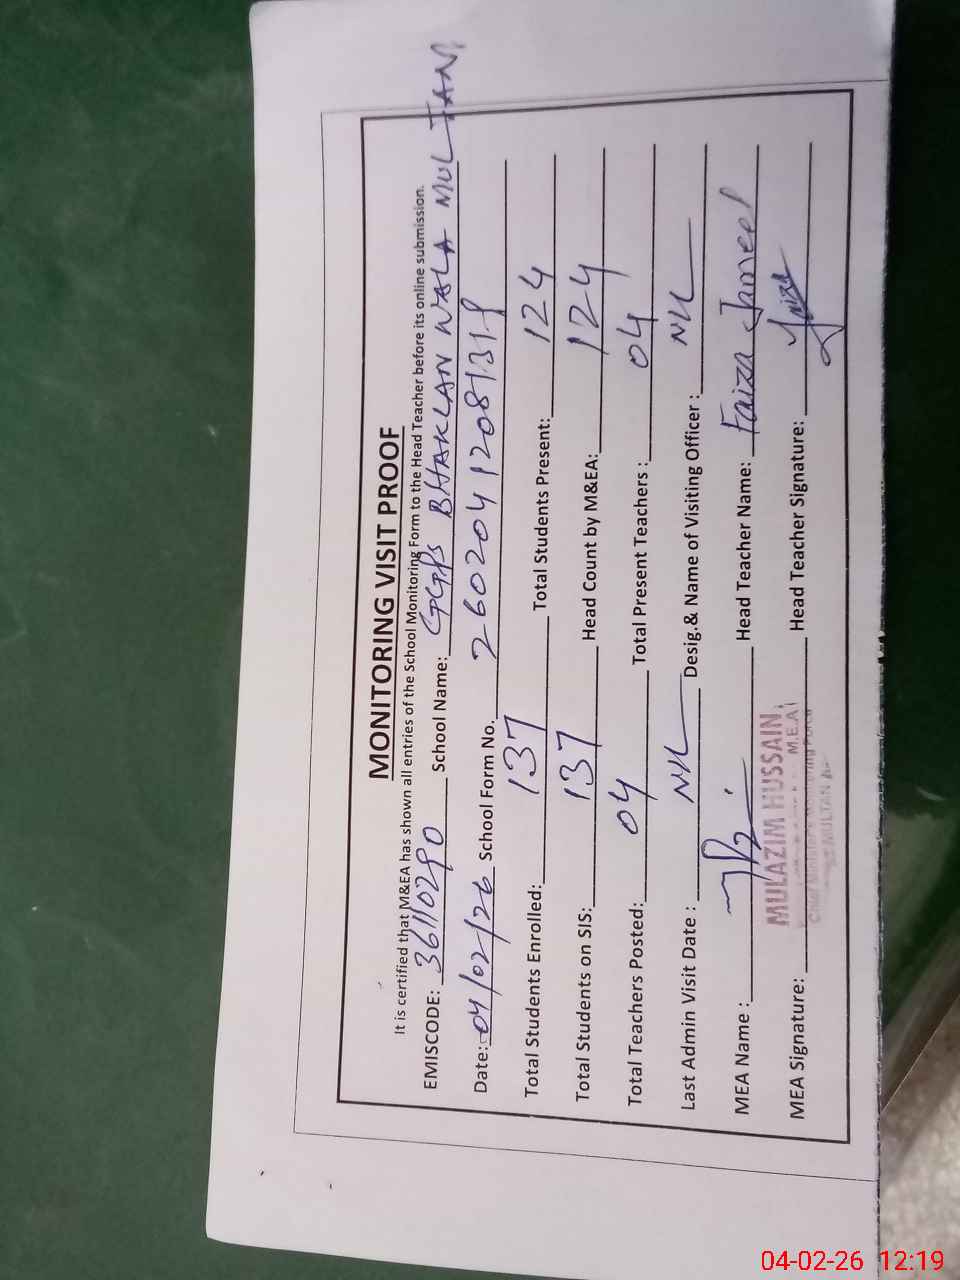 MONITORING VISIT PROOF
It is certified that M&EA has shown all entries of the School Monitoring Form to the Head Teacher before its online submission.
EMISCODE: 36110290 School Name: GGPS BHAKLAN WALA MULTANI
Date: 04/02/26 School Form No. 26020412081318
Total Students Enrolled: 137 Total Students Present: 124
Total Students on SIS: 137 Head Count by M&EA: 124
Total Teachers Posted: 04 Total Present Teachers : 04
Last Admin Visit Date : NIL Desig.& Name of Visiting Officer : NIL
MEA Name : Head Teacher Name: Faiza Jameel
MEA Signature: Head Teacher Signature: Faiza
MULAZIM HUSSAIN
M.E.A
Chief Minister's Monitoring Force
MULTAN
04-02-26 12:19